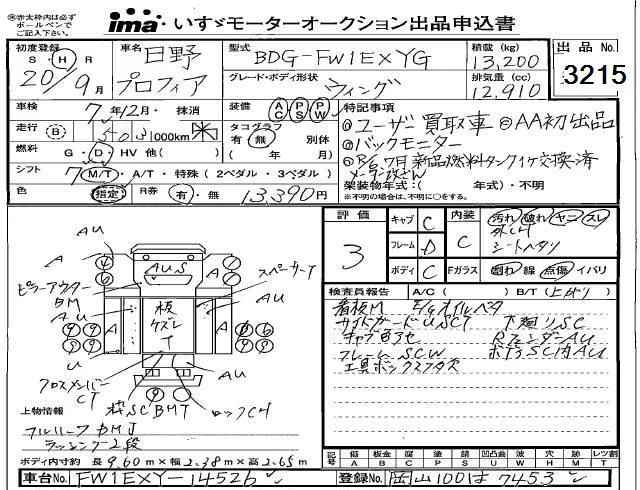 ※赤太枠内は必ず
ボールペンで
ご記入下さい。
ima いすゞモーターオークション出品申込書
初度登録 S・H・R 20年9月
車名 日野 プロフィア
型式 BDG-FW1EXYG
グレード・ボディ形状 ウィング
積載(kg) 13,200
排気量(cc) 12,910
出品No. 3215
車検 7年12月・抹消
装備 AC PS PW
走行 (B) 000km
タコグラフ 有・無 別体
(年 月)
燃料 G・D・HV 他( )
シフト 7 M/T・A/T・特殊(2ペダル・3ペダル)
色 指定 R券 有・無 13,390円
特記事項
◎ユーザー買取車 ◎AA初出品
◎バックモニター
◎R6.7月新品燃料タンク1ケ交換済
メーター改ざん
架装物年式:( 年式)・不明
※不明の場合は、不明に○をする。
評価 3
キャブ C
フレーム D
ボディ C
内装 C
汚れ・破れ・ヤニ・スレ
シートヘタリ
Fガラス 割れ・線・点傷・イバリ
検査員報告 A/C( ) B/T(上がり)
看板M E/gオイルベタ
サイドガードUSCT 下廻りSC
キャブBアセ RフェンダーAU
フレームSCW ボデー SC内AU
工具ボックスフタズ
AU
AUS
ピラーアウター
BM
スペーサーT
AU
A
板
ケズレ
T
A
AU
U
クロスメンバー
CT
AU
SCBMT
ロックCH
上物情報
フルハーフ BMJ
ラッシング2段
ボディ内寸約 長9.60m×幅2.38m×高2.65m
記号 傷 凹 腐 塗 錆 凹凸曲 波 穴 跡 レツ割
A B C P S U W H M T
車台No. FW1EXY-14526
登録No. 岡山100は7453